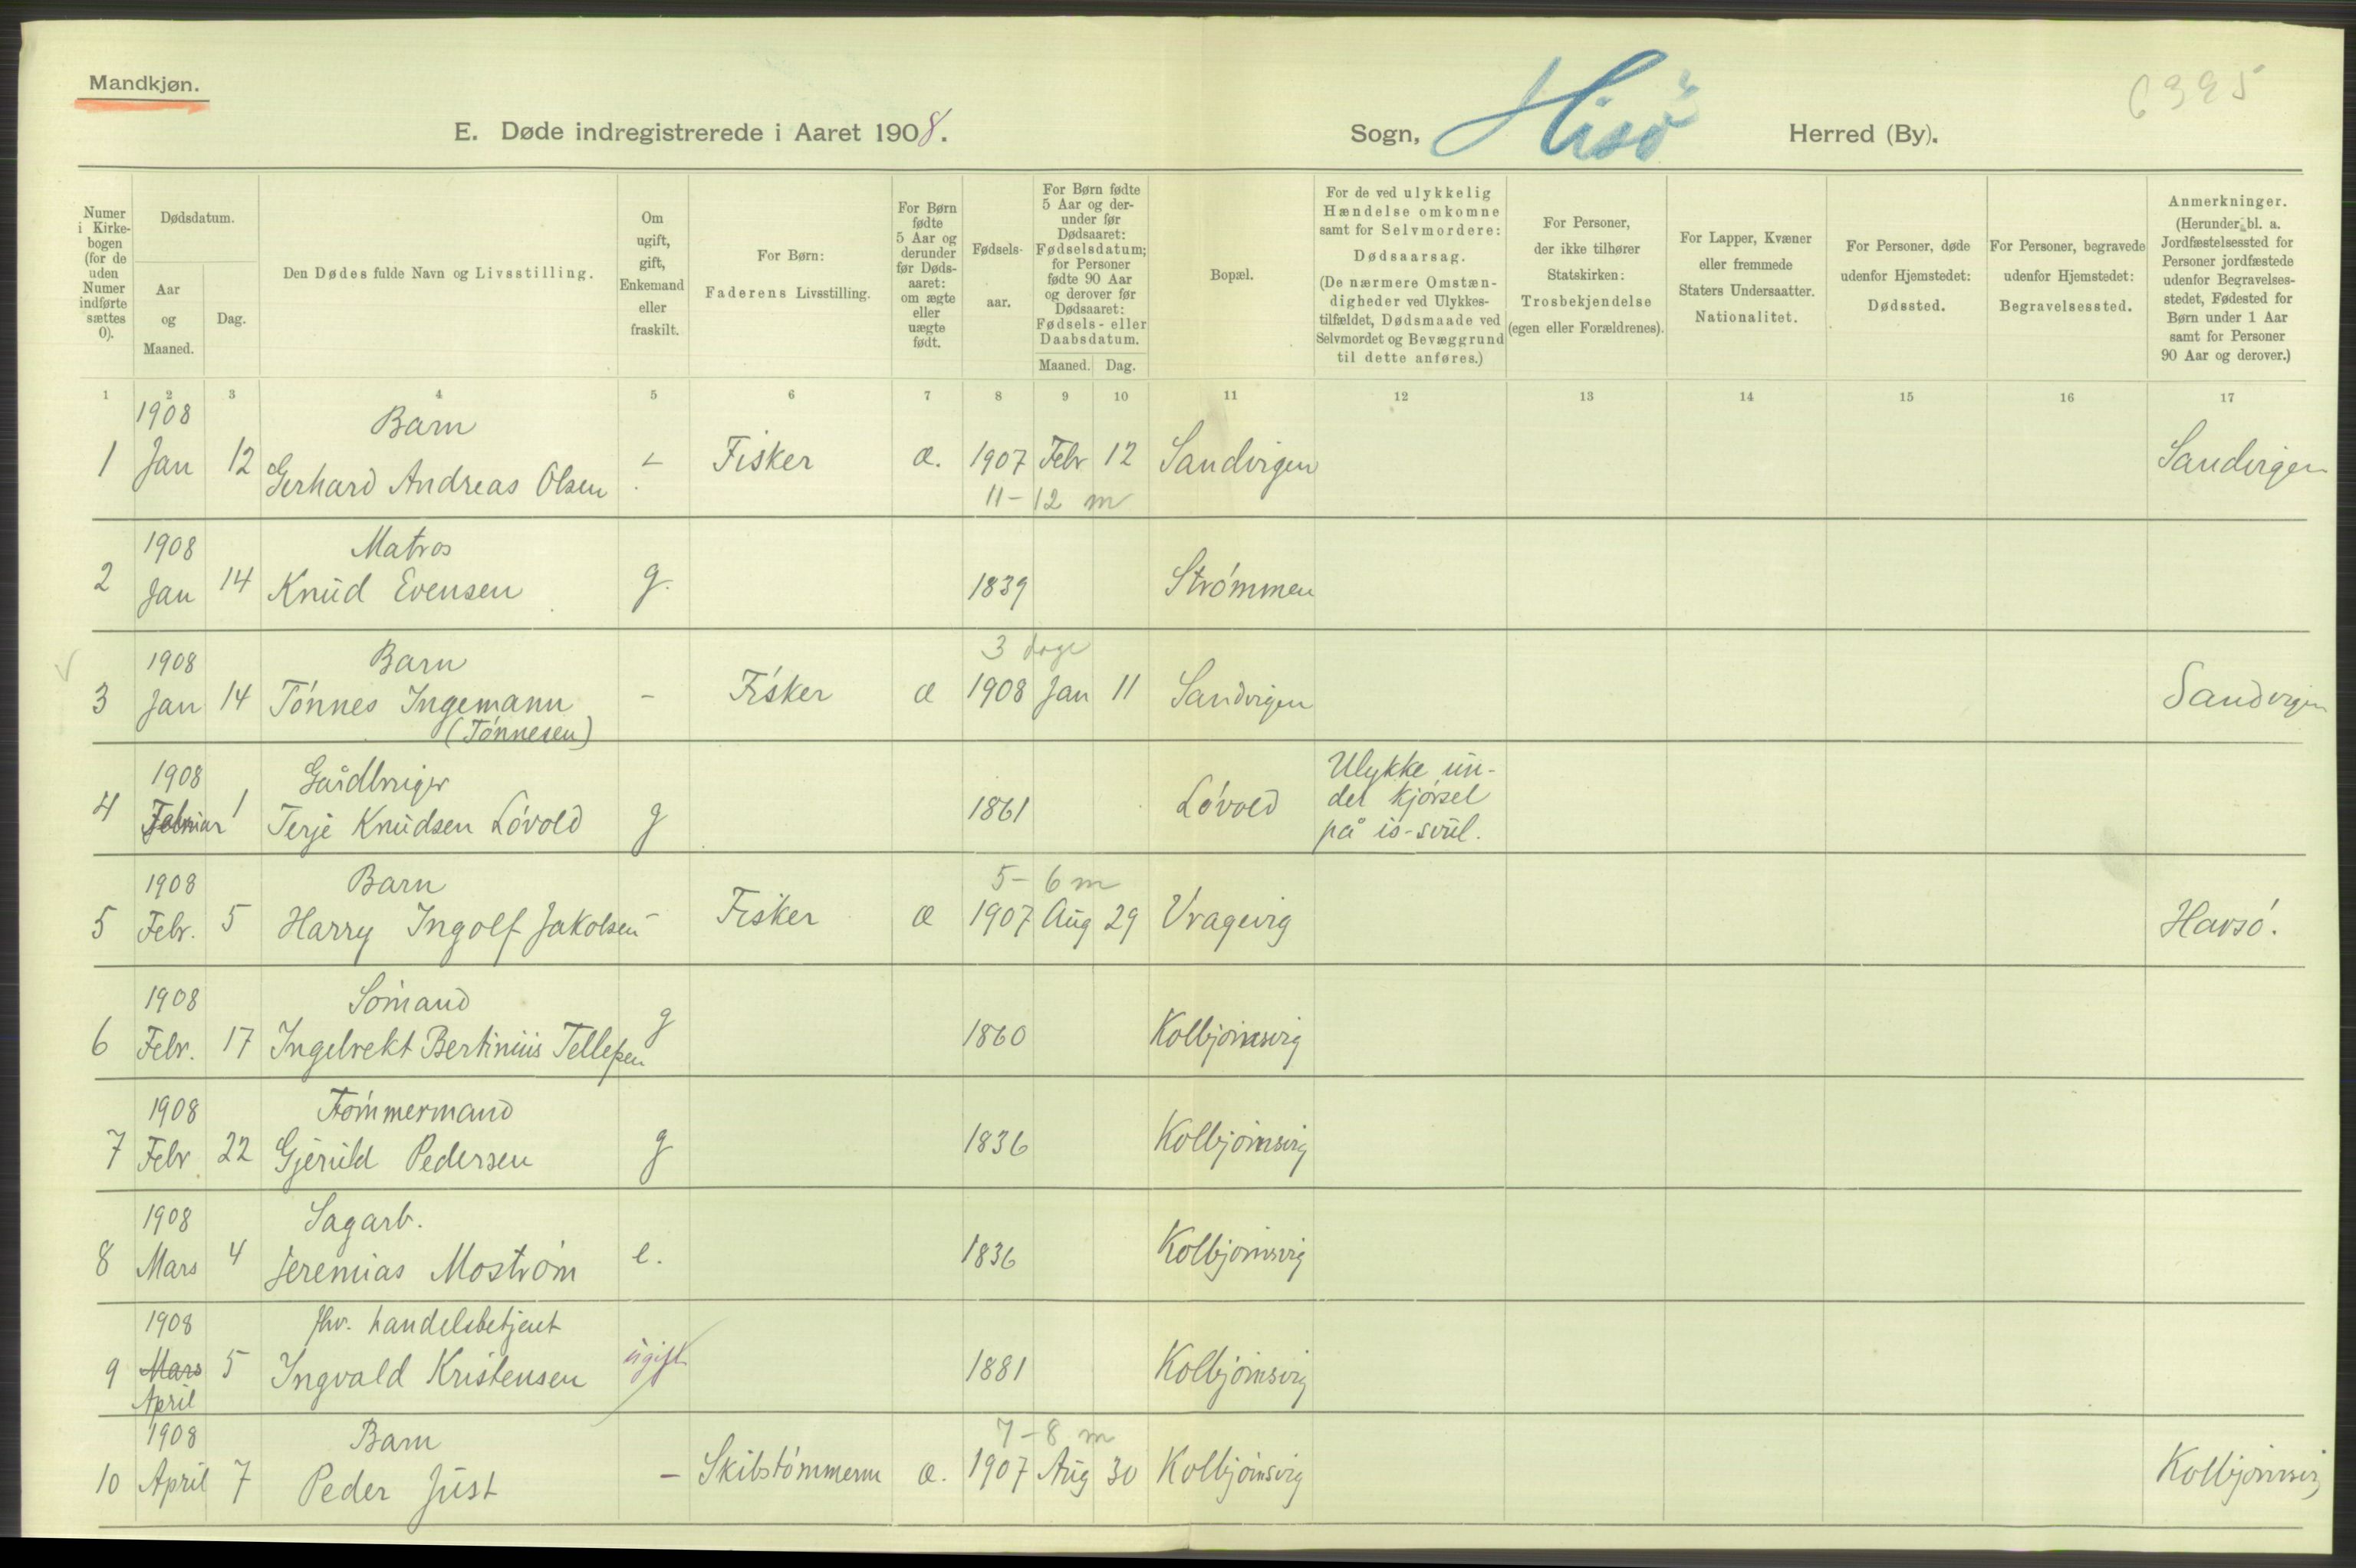 Mandkjøn.
6395
E. Døde indregistrerede i Aaret 1908.
Sogn, Hisö Herred (By).
Numer i Kirkebogen (for de uden Numer indførte sættes 0).
Dødsdatum.
Aar og Maaned.
Dag.
Den Dødes fulde Navn og Livsstilling.
Om ugift, gift, Enkemand eller fraskilt.
For Børn: Faderens Livsstilling.
For Børn fødte 5 Aar og derunder før Dødsaaret: om ægte eller uægte født.
Fødselsaar.
For Børn fødte 5 Aar og derunder før Dødsaaret: Fødselsdatum; for Personer fødte 90 Aar og derover før Dødsaaret: Fødsels- eller Daabsdatum.
Maaned. Dag.
Bopæl.
For de ved ulykkelig Hændelse omkomne samt for Selvmordere: Dødsaarsag. (De nærmere Omstændigheder ved Ulykkestilfældet, Dødsmaade ved Selvmordet og Bevæggrund til dette anføres.)
For Personer, der ikke tilhører Statskirken: Trosbekjendelse (egen eller Forældrenes).
For Lapper, Kvæner eller fremmede Staters Undersaatter. Nationalitet.
For Personer, døde udenfor Hjemstedet: Dødssted.
For Personer, begravede udenfor Hjemstedet: Begravelsessted.
Anmerkninger. (Herunder bl. a. Jordfæstelsessted for Personer jordfæstede udenfor Begravelsesstedet, Fødested for Børn under 1 Aar samt for Personer 90 Aar og derover.)
1 2 3 4 5 6 7 8 9 10 11 12 13 14 15 16 17
1908 Barn
1 Jan 12 Gerhard Andreas Olsen - Fisker æ. 1907 Febr 12 Sandvigen Sandvigen
11-12 m
1908 Matros
2 Jan 14 Knud Evensen g. 1839 Strömmen
3 dage
1908 Barn
3 Jan 14 Tönnes Ingemann - Fisker æ 1908 Jan 11 Sandvigen Sandvigen
(Tönnesen)
1908 Gårdbruger Ulykke un-
4 Februar 1 Terje Knudsen Lövold g 1861 Lövold der kjörsel
på is-svul.
1908 Barn 5-6 m
5 Febr. 5 Harry Ingolf Jakobsen - Fisker æ 1907 Aug 29 Vragevig Havsö.
1908 Sömand
6 Febr. 17 Ingebrekt Bertinius Tellefsen g 1860 Kolbjörnsvig
1908 Tömmermand
7 Febr 22 Gjeruld Pedersen g 1836 Kolbjörnsvig
1908 Sagarb.
8 Mars 4 Jeremias Moström e. 1836 Kolbjörnsvig
1908 fhv. handelsbetjent
9 Mars 5 Ingvald Kristensen ugift 1881 Kolbjörnsvig
April
1908 Barn 7-8 m
10 April 7 Peder Just - Skibstömmerm æ. 1907 Aug 30 Kolbjörnsvig Kolbjörnsvig